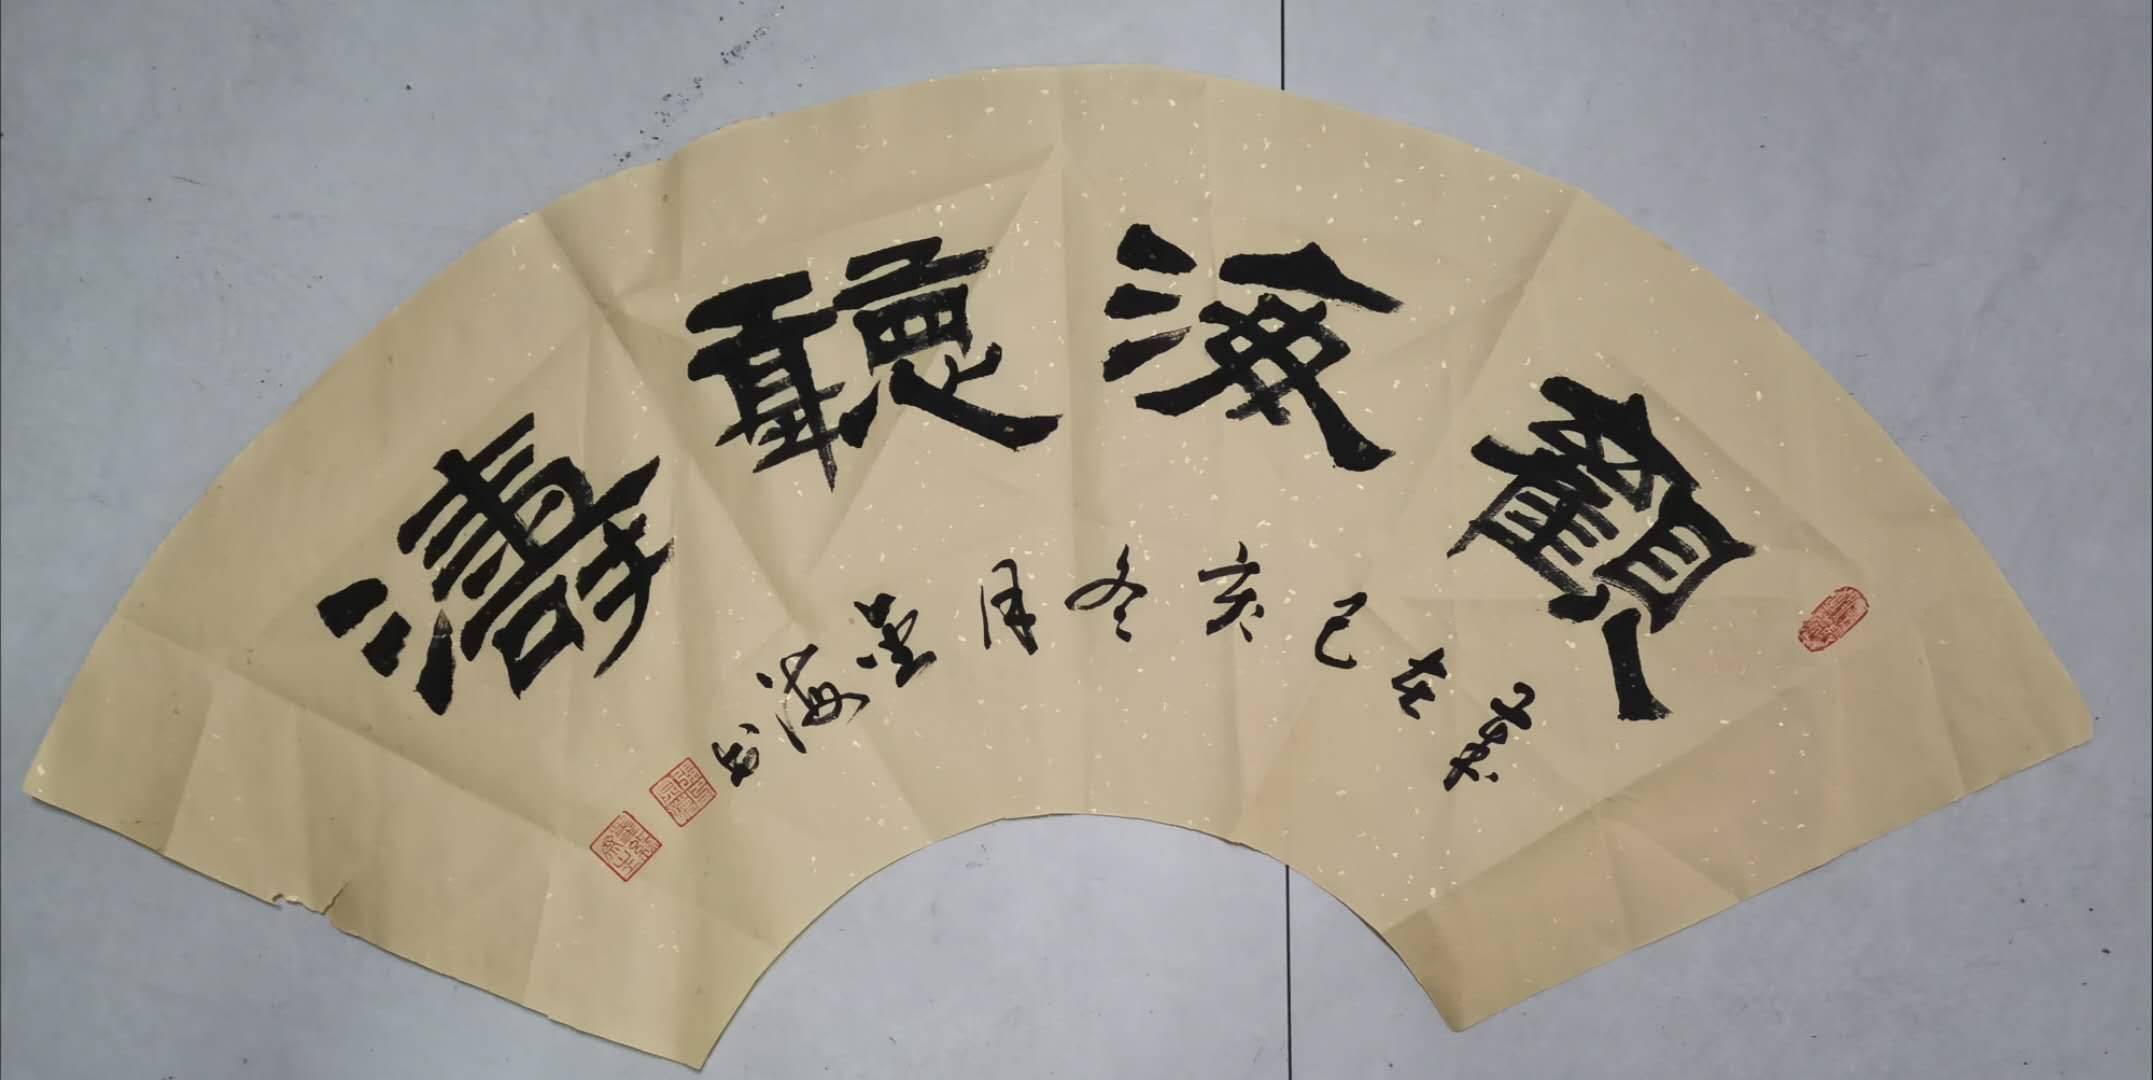 觀海聽濤
歲在己亥冬月 海 书